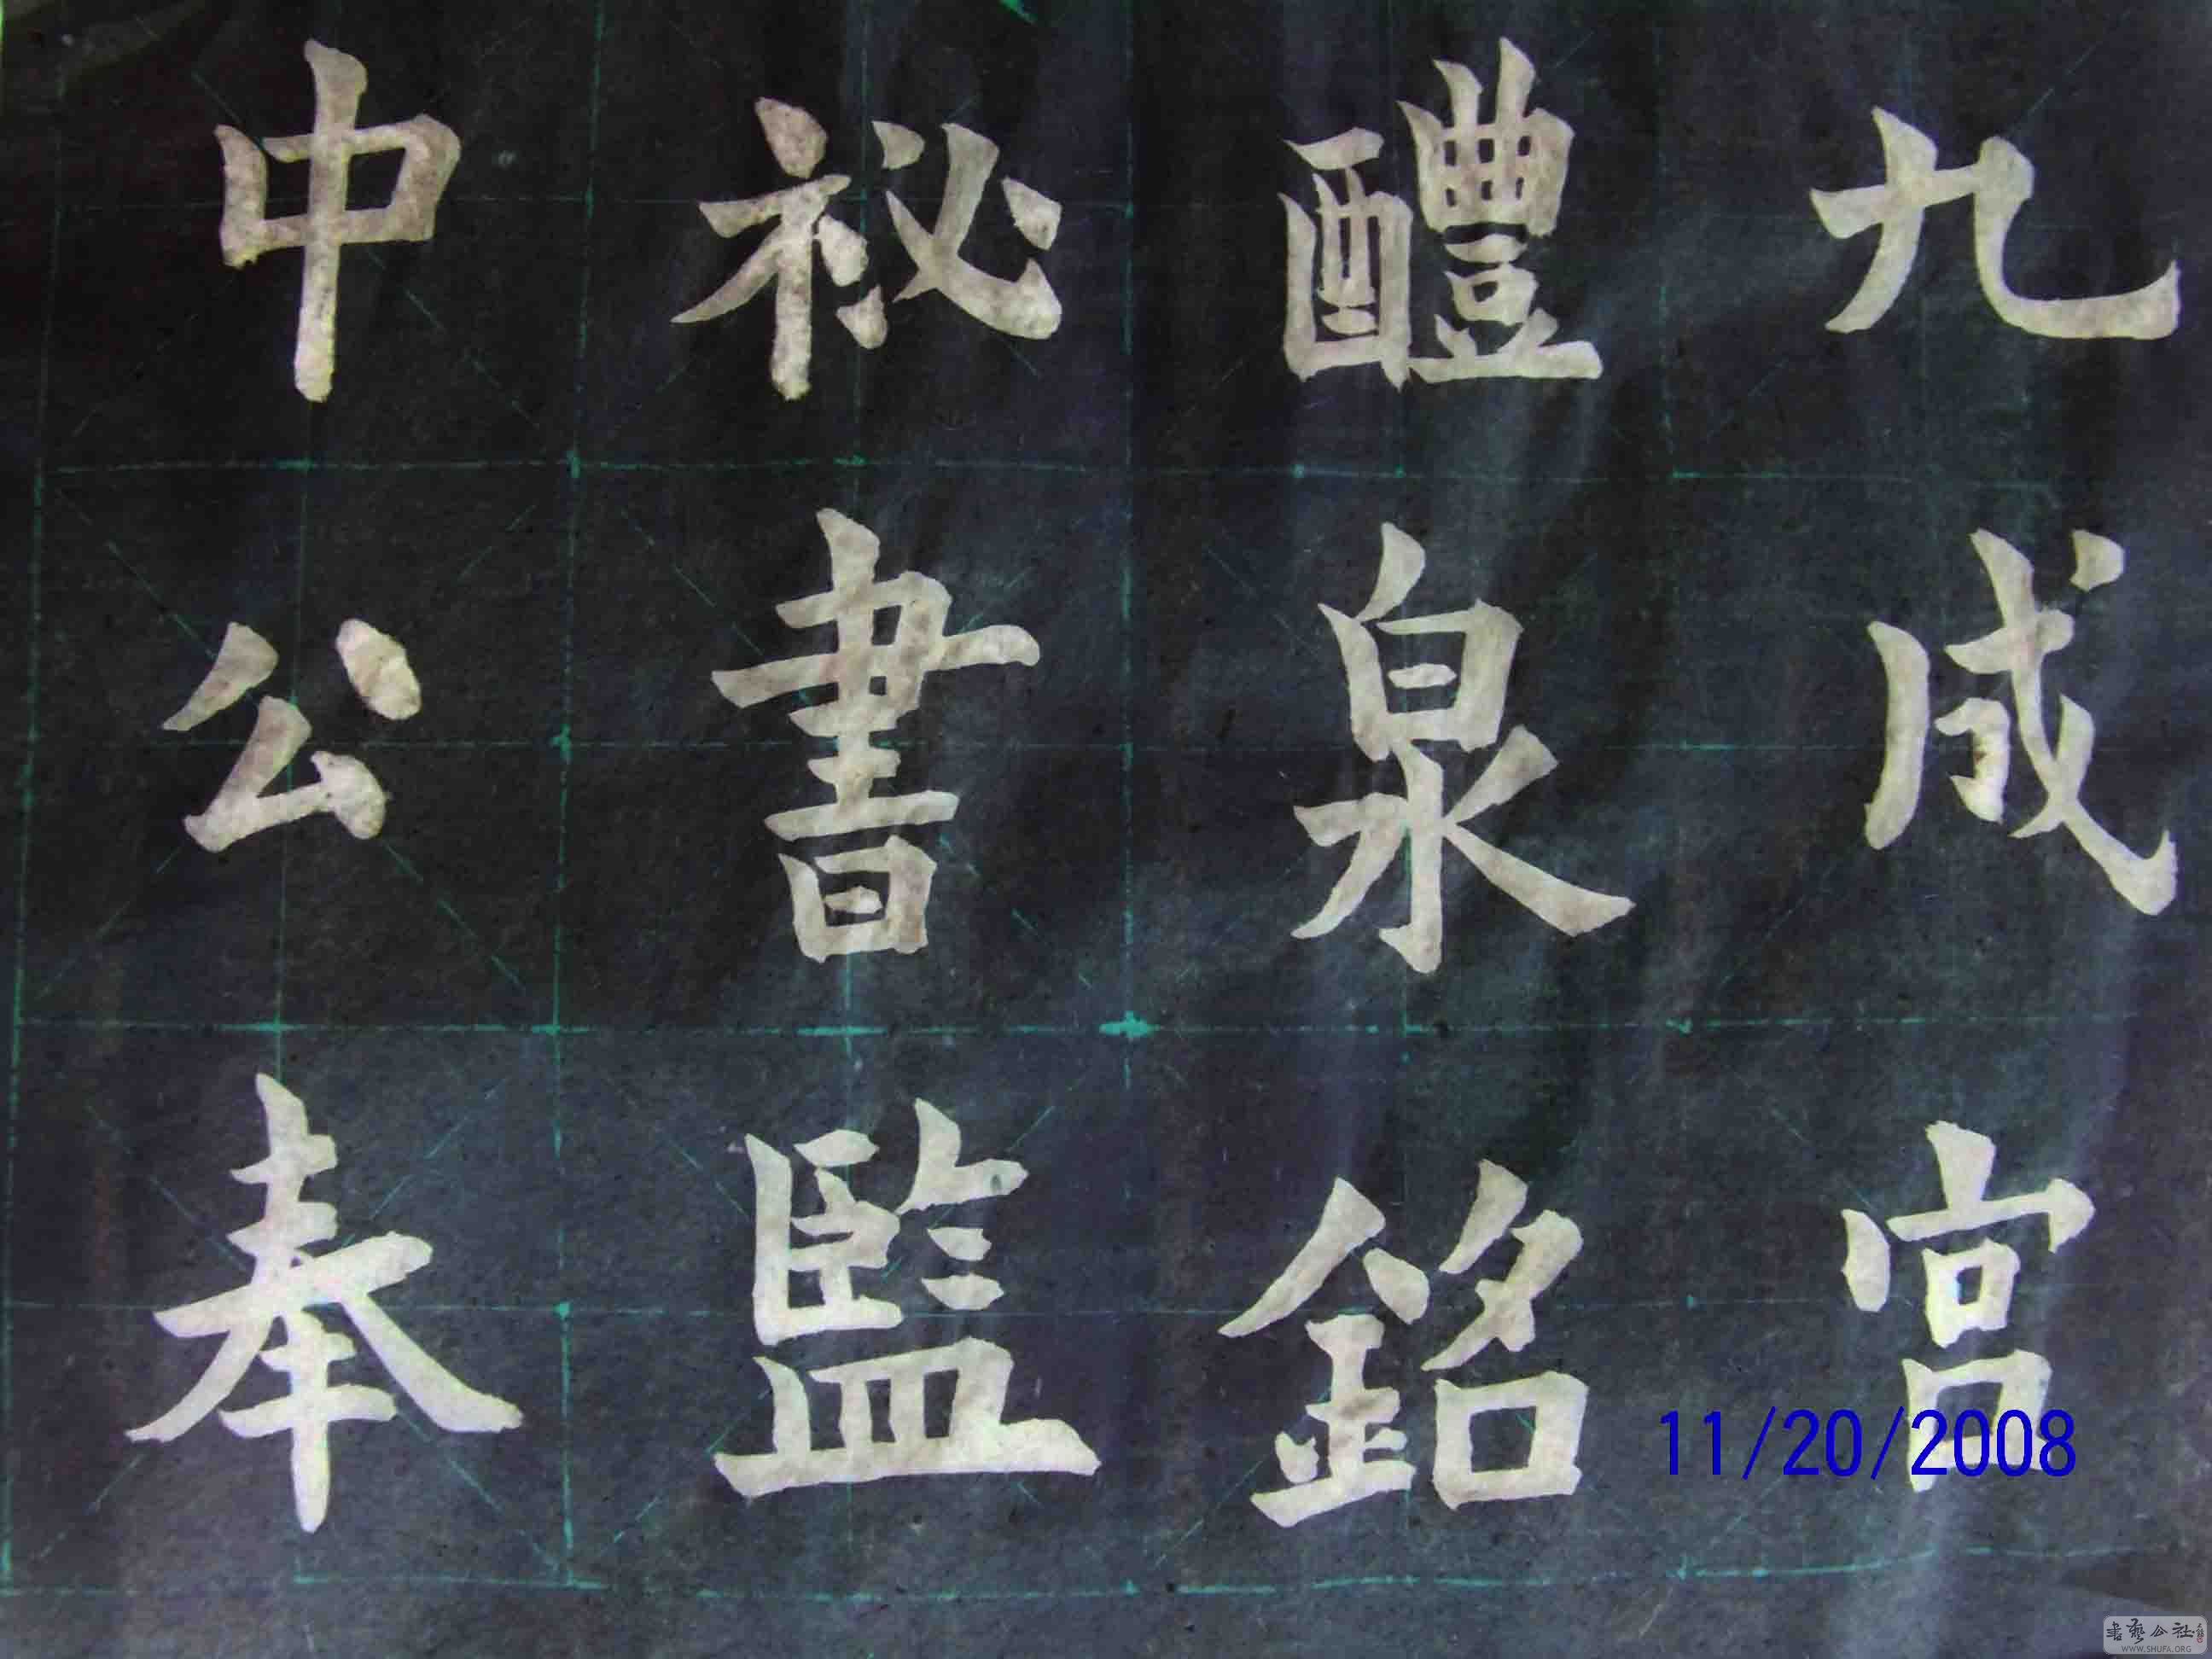 九成宮
醴泉銘
祕書監
中公奉
11/20/2008
書藝公社
WWW.SHUFA.ORG